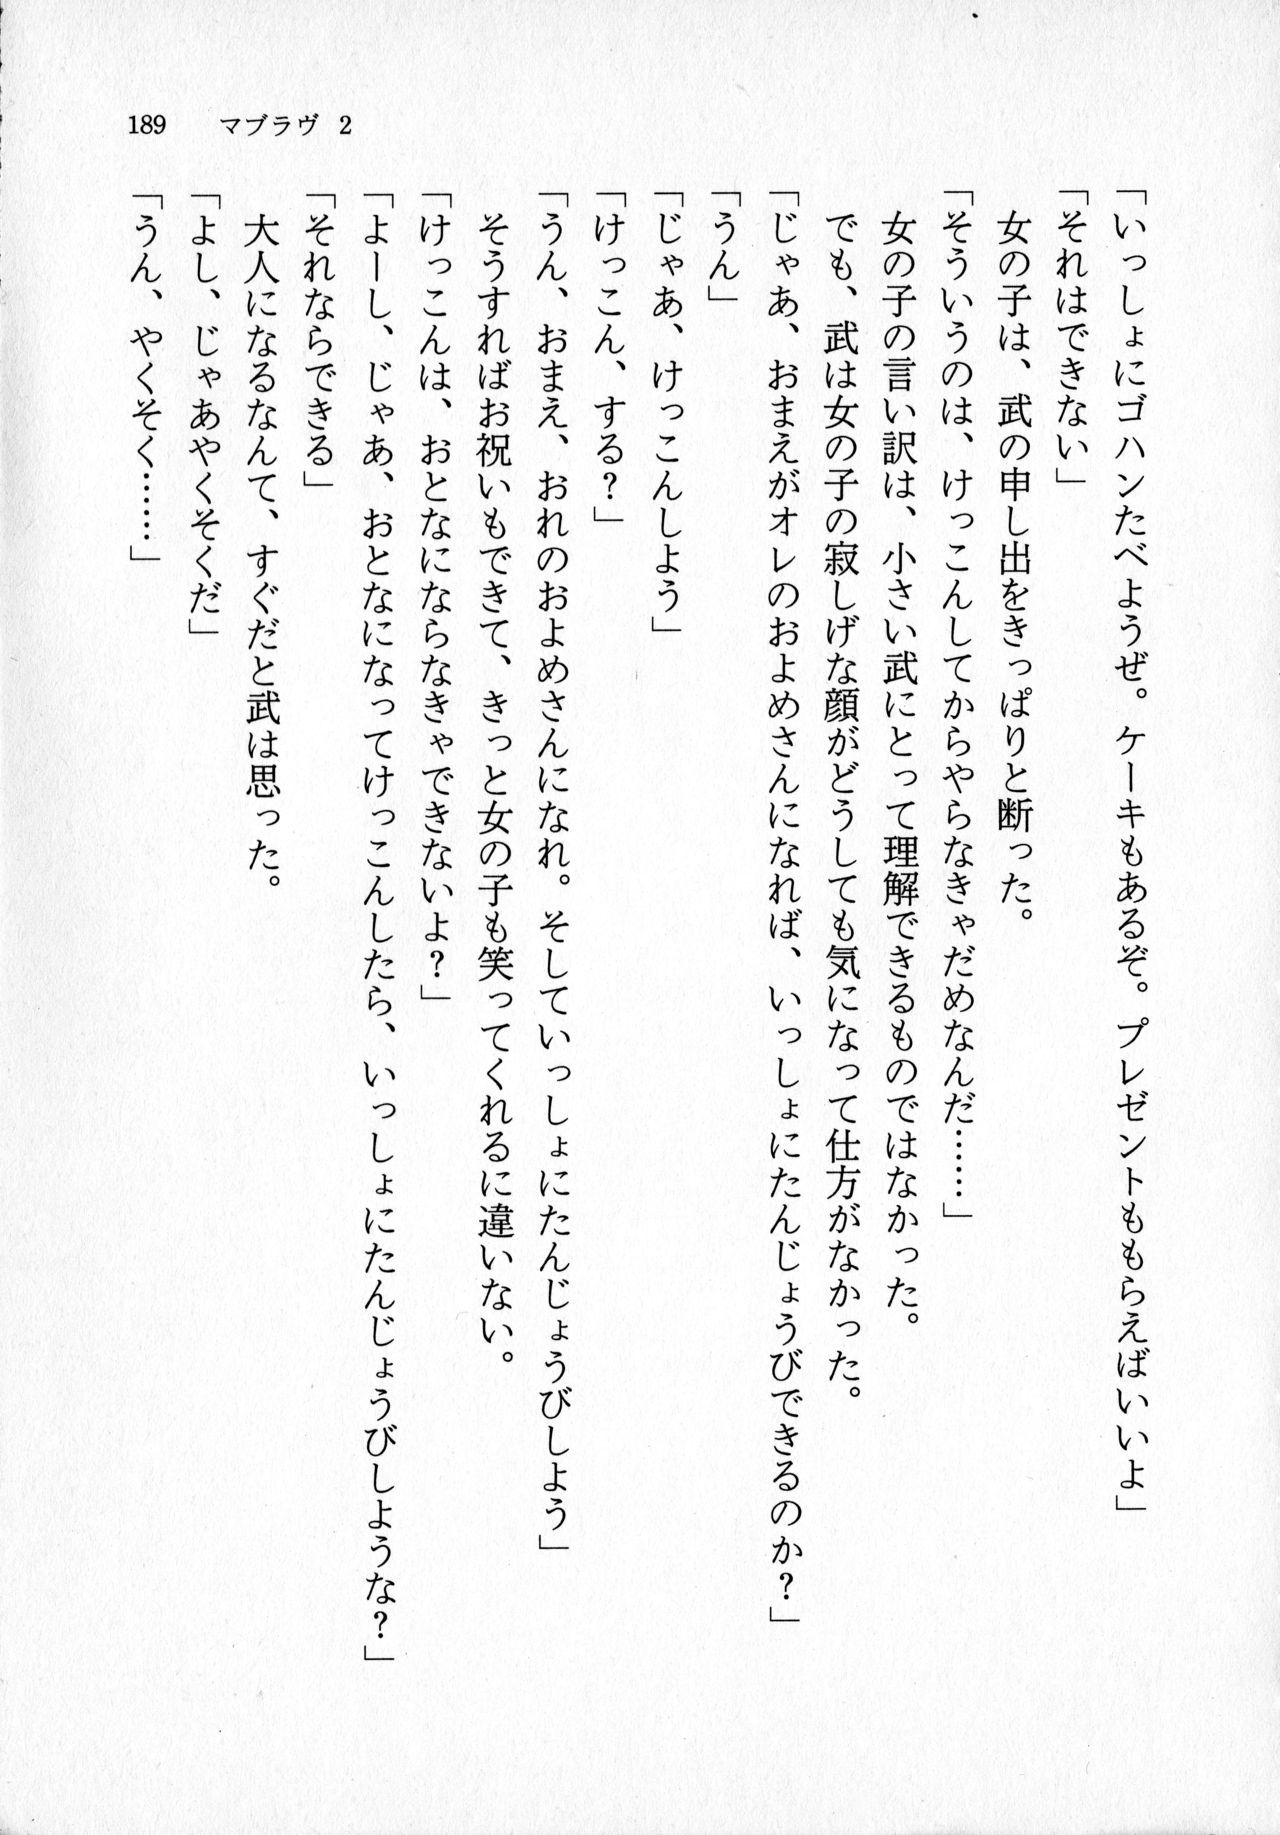 189　マブラヴ 2
「いっしょにゴハンたべようぜ。ケーキもあるぞ。プレゼントももらえばいいよ」
「それはできない」
女の子は、武の申し出をきっぱりと断った。
「そういうのは、けっこんしてからやらなきゃだめなんだ……」
女の子の言い訳は、小さい武にとって理解できるものではなかった。
でも、武は女の子の寂しげな顔がどうしても気になって仕方がなかった。
「じゃあ、おまえがオレのおよめさんになれば、いっしょにたんじょうびできるのか？」
「うん」
「じゃあ、けっこんしよう」
「けっこん、する？」
「うん、おまえ、おれのおよめさんになれ。そしていっしょにたんじょうびしよう」
そうすればお祝いもできて、きっと女の子も笑ってくれるに違いない。
「けっこんは、おとなにならなきゃできないよ？」
「よーし、じゃあ、おとなになってけっこんしたら、いっしょにたんじょうびしような？」
「それならできる」
大人になるなんて、すぐだと武は思った。
「よし、じゃあやくそくだ」
「うん、やくそく……」